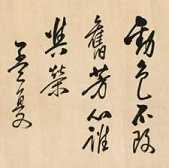 勁色不改
舊芳心誰
與榮
孟夏